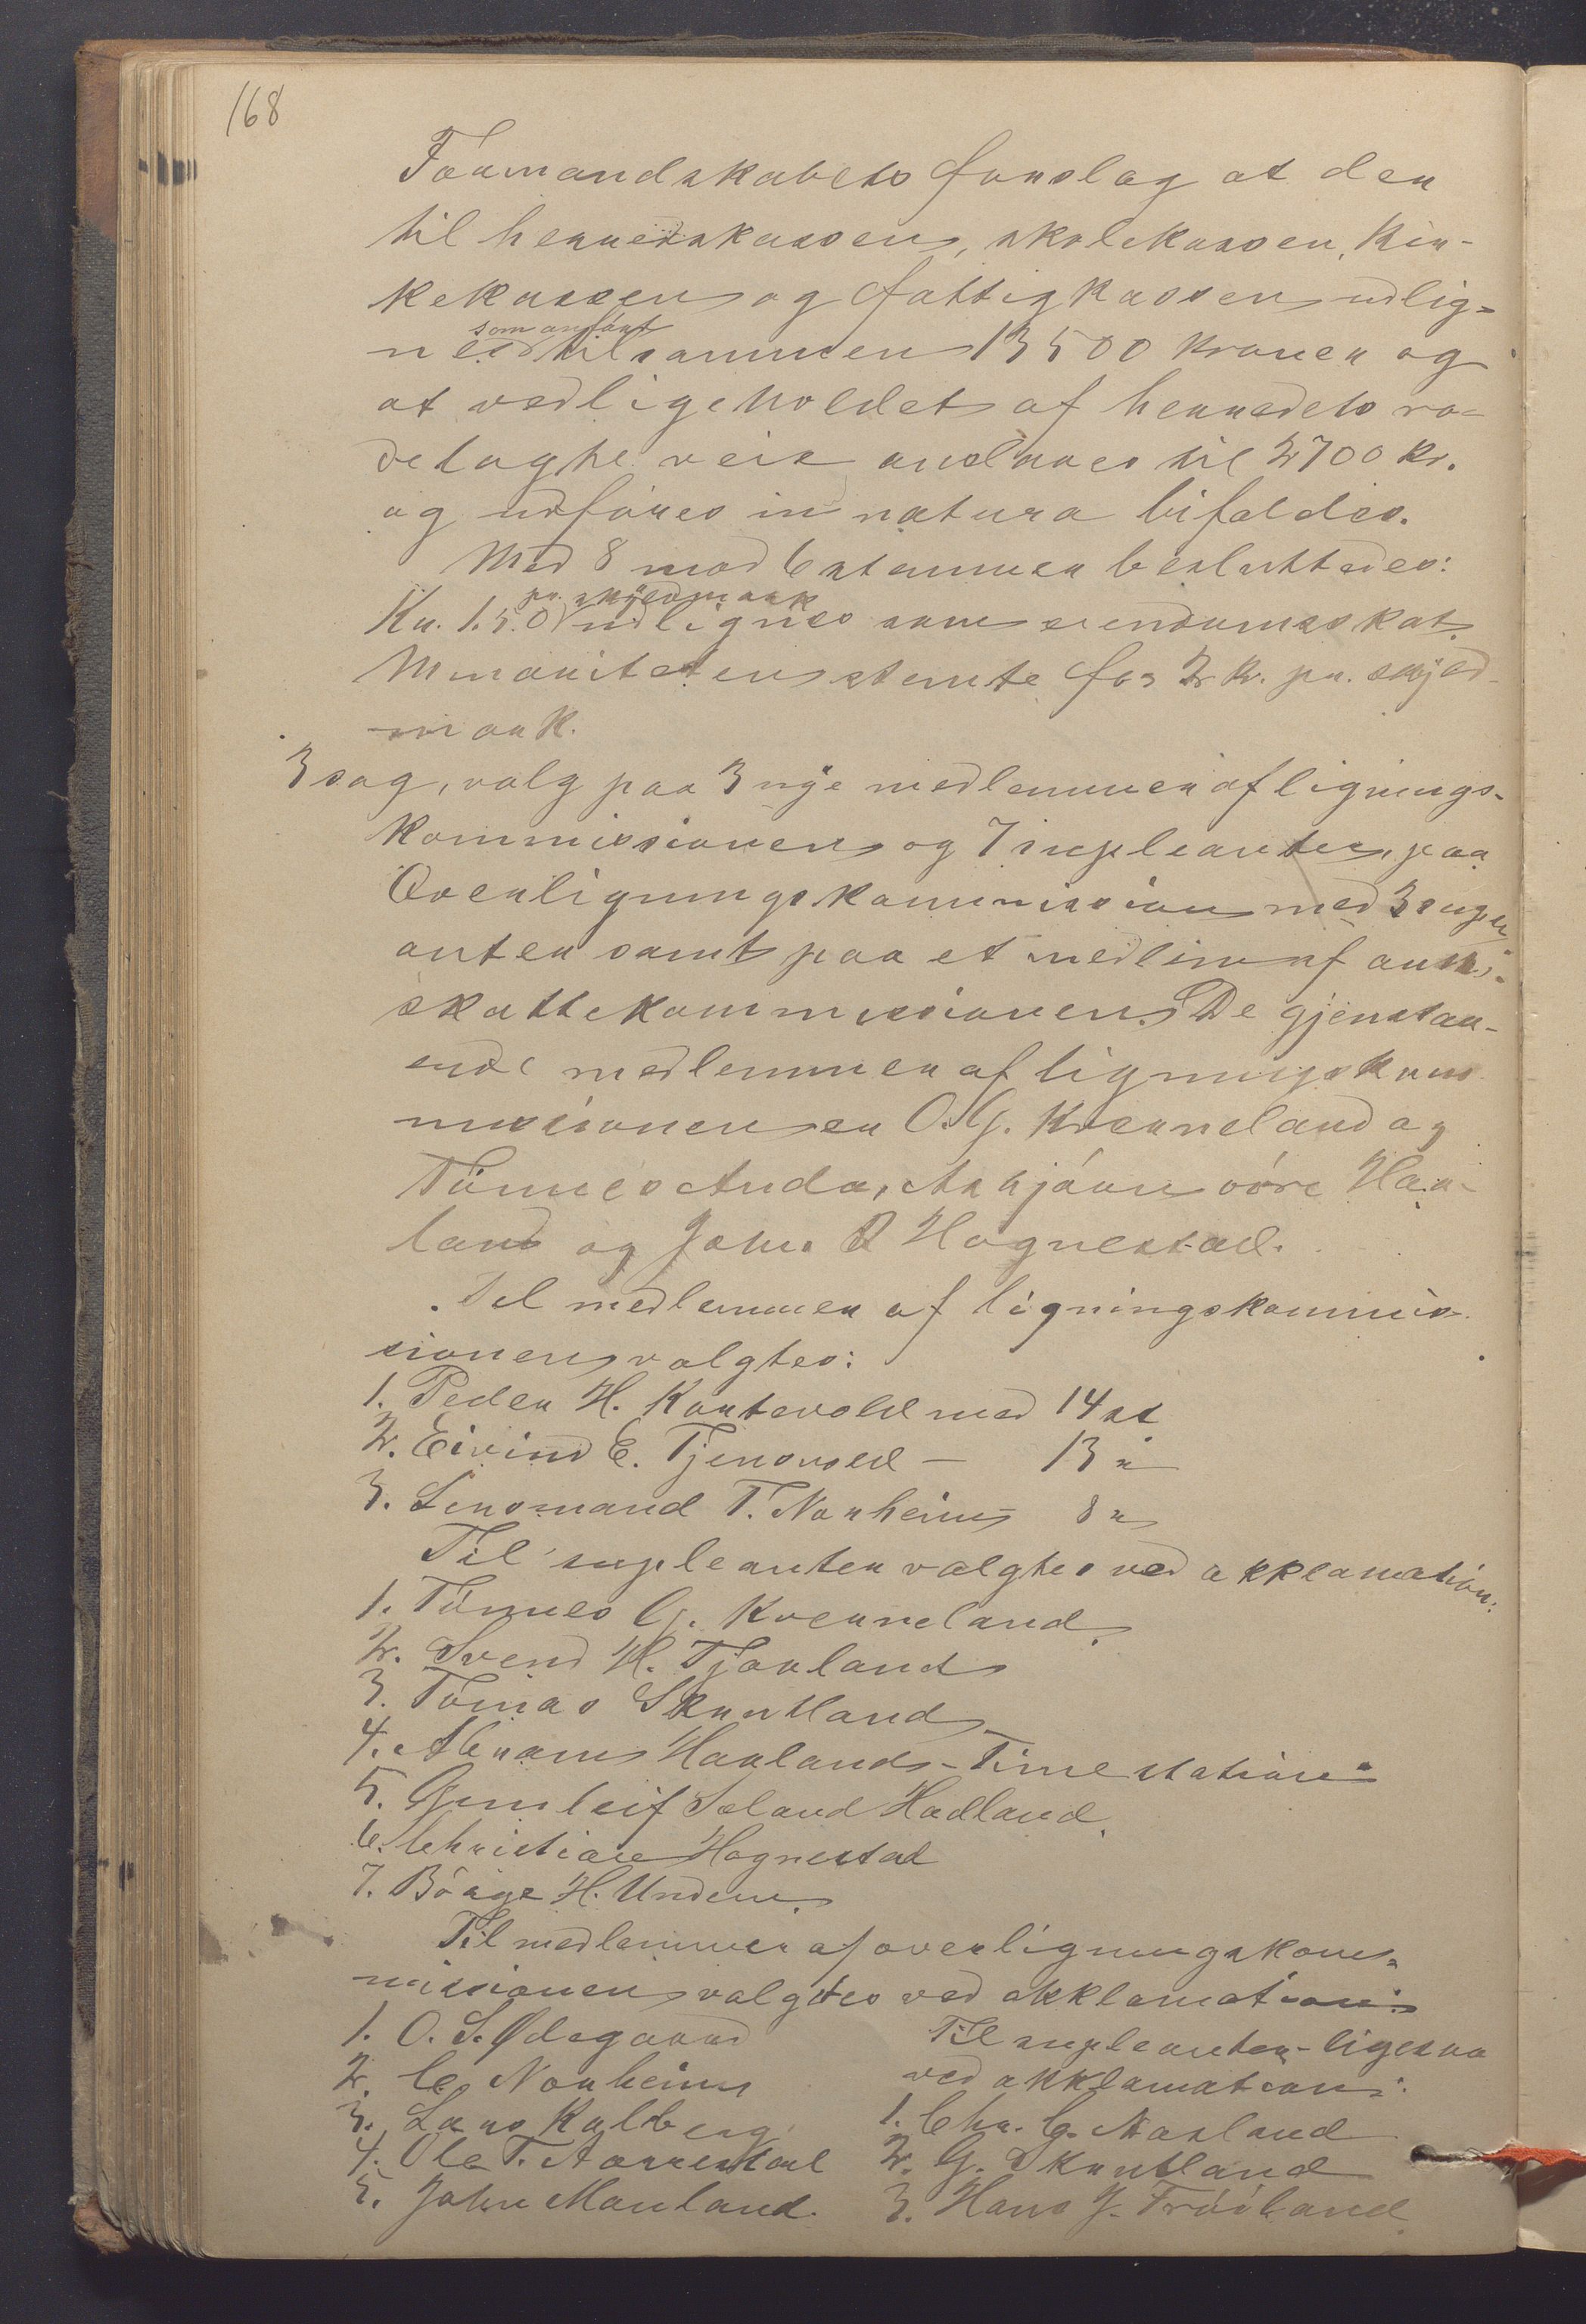 168
Formandskabets forslag at der
til herredskassen, skolekassen, Kir-
kekassen og fattigkassen udlig-
nes som anført tilsammen 13500 kroner og
at vedligeholdet af herredets ro-
delagte veie anslaaes til 2700 kr.
og udføres in natura bifaldes.
Med 8 mod 6 stemmer besluttedes:
Kr. 1.50 pr. skyldmark udlignes som eiendomsskat.
Minoriteten stemte for 2 kr. pr. skyld-
mark.
3 sag, valg paa 3 nye medlemmer af lignings-
kommissionen og 7 supleanter, paa
Overligningskommission med 3 suple-
anter samt paa et medlem af amts-
skattekommissionen. De gjenstaa-
ende medlemmer af ligningskom-
missionen er O. G. Kverneland og
Tønnes Anda, Asbjørn øvre Haa-
land og John Hognestad.
Til medlemmer af ligningskommis-
sionen valgtes:
1. Peder H. Kartevold med 14 st
2. Eivind E. Tjensvold - 13 "
3. Sensmand T. Norheim - 8 "
Til supleanter valgtes ved akklamation:
1. Tønnes G. Kverneland.
2. Svend H. Tjaaland
3. Tomas Skretland
4. Abram Haaland - Time station
5. Gunleif Søland Hadland.
6. Christian Hognestad
7. Børge H. Undem.
Til medlemmer af overligningskom-
missionen valgtes ved akklamation:
1. O. S. Ødegaard
2. C. Norheim
3. Lars Kalberg
4. Ole T. Aarrestad
5. John Mauland.
Til supleanter ligesaa
ved akklamation:
1. Chr. G. Norland
2. G. Skretland
3. Hans J. Frøiland